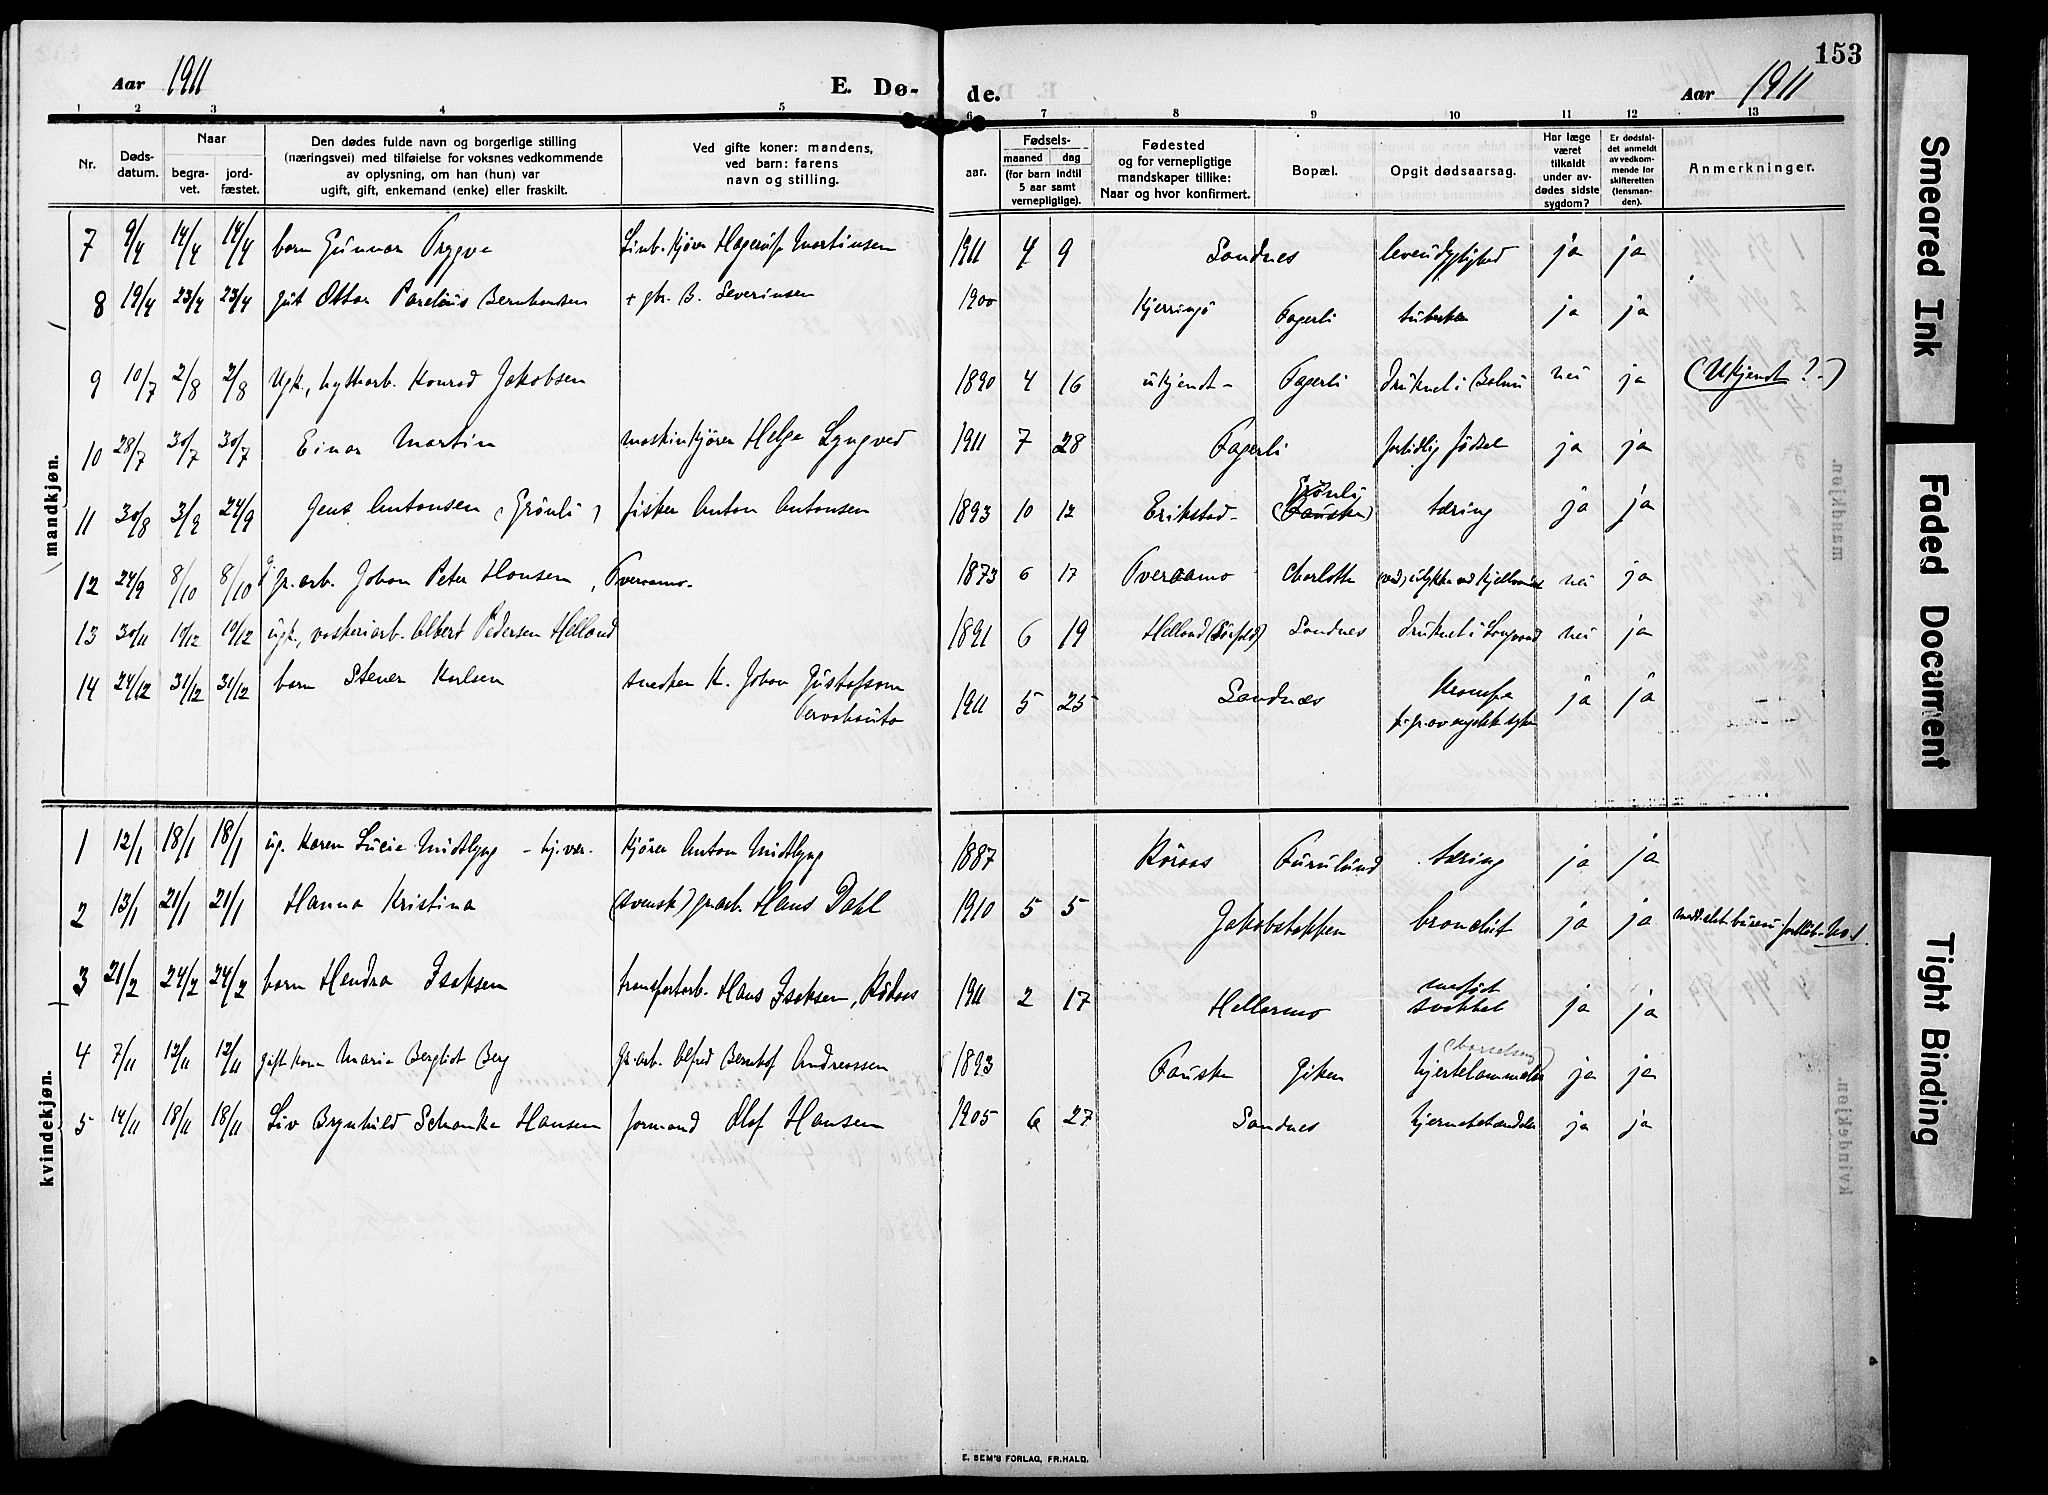 153
Aar 1911
E. Dø-
de.
Aar 1911
1 2 3 4 5 6 7 8 9 10 11 12 13
Nr.
Døds-
datum.
Naar
begra-
vet.
jord-
fæstet.
Den dødes fulde navn og borgerlige stilling
(næringsvei) med tilføielse for voksnes vedkommende
av oplysning, om han (hun) var
ugift, gift, enkemand (enke) eller fraskilt.
Ved gifte koner: mandens,
ved barn: farens
navn og stilling.
Fødsels-
aar.
maaned dag
(for barn indtil
5 aar samt
vernepligtige).
Fødested
og for vernepligtige
mandskaper tillike:
Naar og hvor konfirmert.
Bopæl.
Opgit dødsaarsag.
Har læge
været
tilkaldt
under av-
dødes sidste
sygdom?
Er dødsfal-
det anmeldt
av vedkom-
mende for
skifteretten
(lensman-
den).
Anmerkninger.
(mandkjøn.
7 9/4 14/4 14/4 barn Gunnar Trygve Hagerup Martinsen 1911 4 9 Sandnes leveudygtighed ja ja
8 19/4 23/4 23/4 gut Ottar Parelius Bernhardsen + gbr. B. Severinsen 1900 Kjerringö Fagerli ja ja
9 10/7 2/8 2/8 Ugk., hyttarb. Konrad Jakobsen 1890 4 16 ukjendt - Fagerli Druknet i nei ja (Ukjendt? -)
10 28/7 30/7 30/7 Einar Martin maskinkjörer Helge Lyngved 1911 7 28 Fagerli fortidlig fødsel ja ja
11 30/8 3/9 24/9 Jens Antonsen (Grönli) fisker Anton Antonsen 1893 10 12 Erikstad - Grönli (Fauske) tæring ja ja
12 24/9 8/10 8/10 gr. arb. Johan Peter Hansen, Tveraamo. 1873 6 17 Tveraamo Charlotta nei ja
13 30/11 10/12 10/12 ugk., vaskeriarb. Albert Pedersen Helland 1891 6 19 Helland (Sörfold) Sandnes Druknet i Langvand nei ja
14 24/12 31/12 31/12 barn Stener Karlsen snedker K. Johan Gustafsson 1911 5 25 Sandnes Krampe ja ja
kvindekjøn.
1 12/1 18/1 18/1 ug. Karen Lucie Midtlyng - Kjörer Anton Midtlyng 1887 Röraas Furulund tæring ja ja
2 13/1 21/1 21/1 Hanna Kristina (svensk) gr.arb. Hans Dahl 1910 5 5 Jakobsbakken bronchit ja ja
3 21/2 24/2 24/2 barn Hendra Isaksen transportarb. Hans Isaksen, Röraas 1911 2 17 Hellarmo medfödt svakhet ja ja
4 7/11 12/11 12/11 gift kone Maria Bergliot Berg Gr.arb. Alfred Berntof Andreassen 1893 Fauske Giken (barselseng) hjertelammelse ja ja
5 14/11 18/11 18/11 Liv Brynhild Schanke Hansen formand Olof Hansen 1905 6 27 Sandnes ja ja
E. SEM'S FORLAG, FR.HALD.
Smeared Ink
Faded Document
Tight Binding